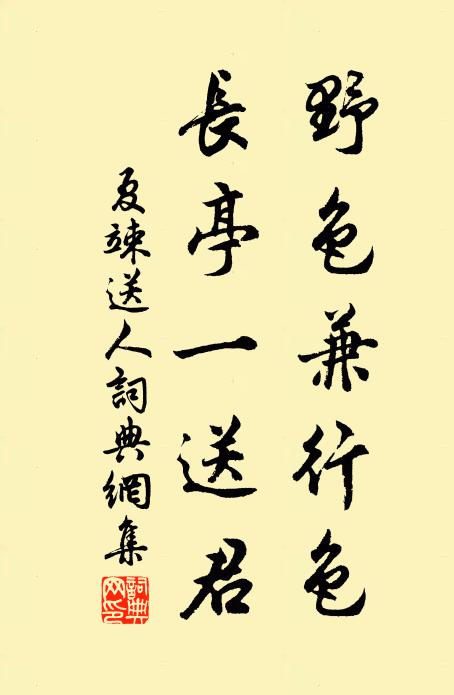 野色兼行色
長亭一送君
夏竦送人詞典網集
詞典
网印